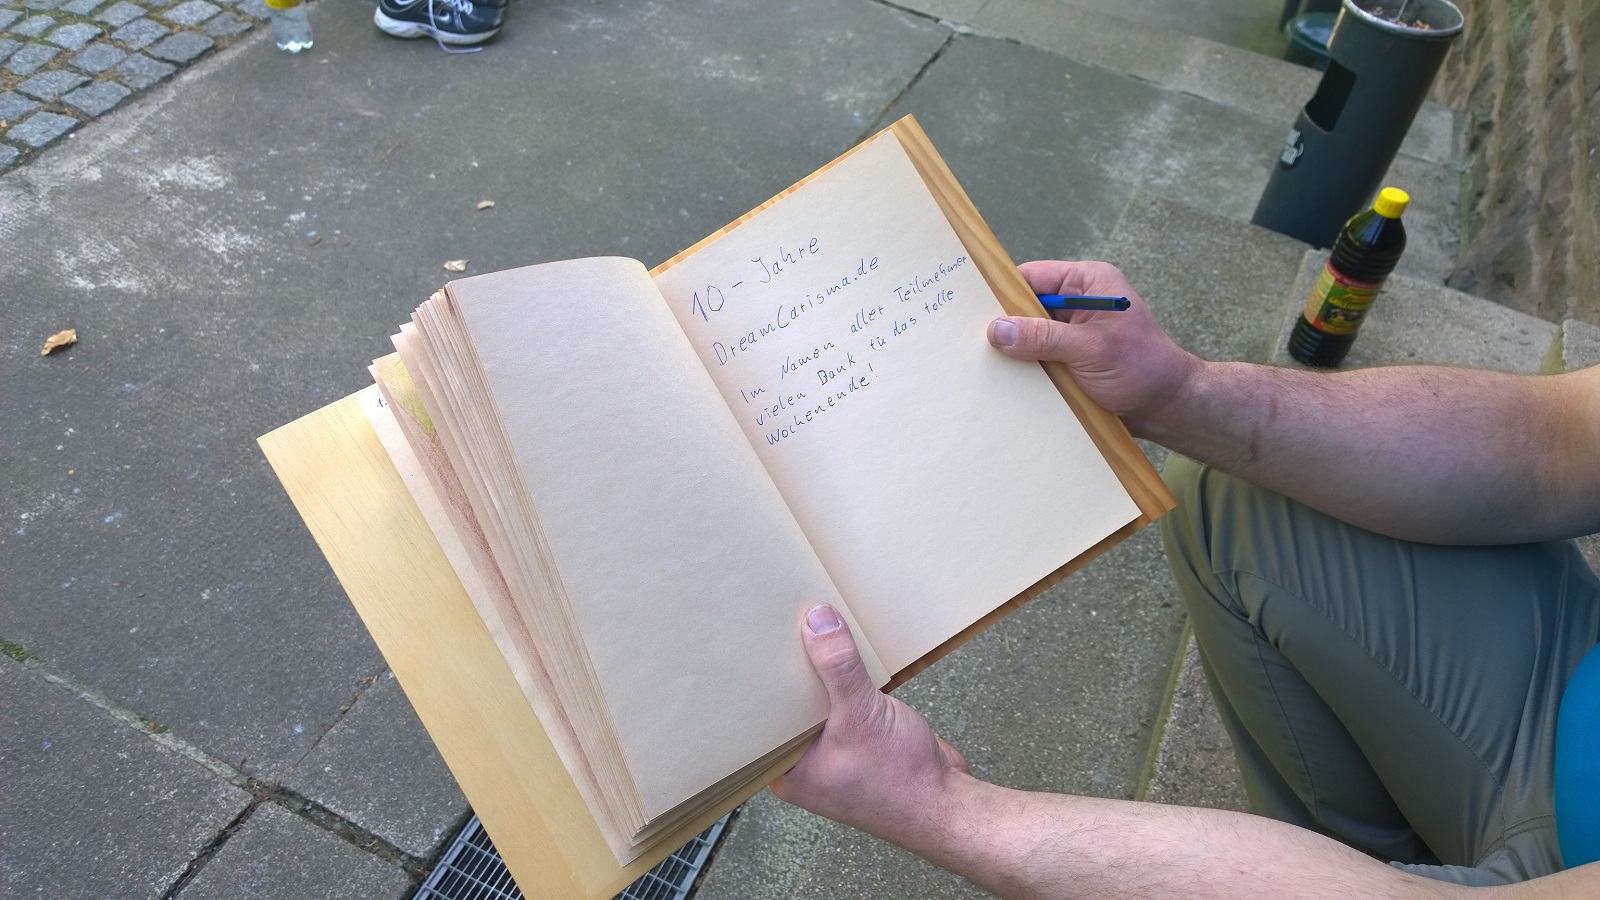 10 - Jahre
DreamCarisma.de
Im Namen aller Teilnehmer
vielen Dank fü das tolle
Wochenende!
1.